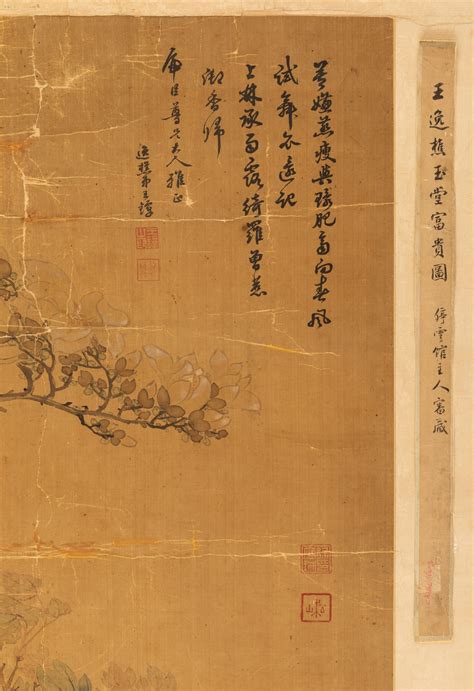 王逸樵玉堂富貴圖 停雲館主人審藏
莫嫌燕瘦與環肥向春風
試舞衣還記
上林承雨露綺羅曾惹
御香歸
臣尊兄大人雅正
逸樵弟王